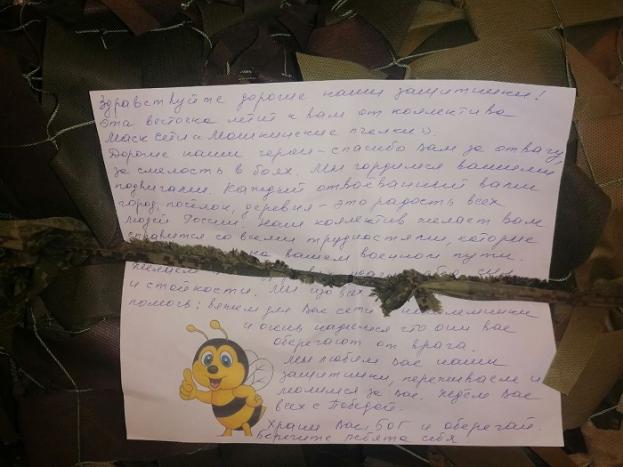 Здравствуйте дорогие наши защитники!
Эта весточка летит к вам от коллектива
Маск сети «Мошкинские пчелки».
Дорогие наши герои - спасибо Вам за отвагу,
за смелость в боях. Мы гордимся вашими
подвигами. Каждый отвоёванный вами
город, посёлок, деревня - это радость всех
людей России. Наш коллектив желает вам
справится со всеми трудностями, которые
на вашем военном пути.
Желаем
и стойкости. Мы
помочь: вяжем для Вас сети
и очень надеемся что они вас
оберегают от врага.
Мы любим Вас наши
защитники, переживаем и
молимся за Вас. Ждём Вас
всех с Победой.
Храни Вас Бог и оберегай.
Берегите ребята себя